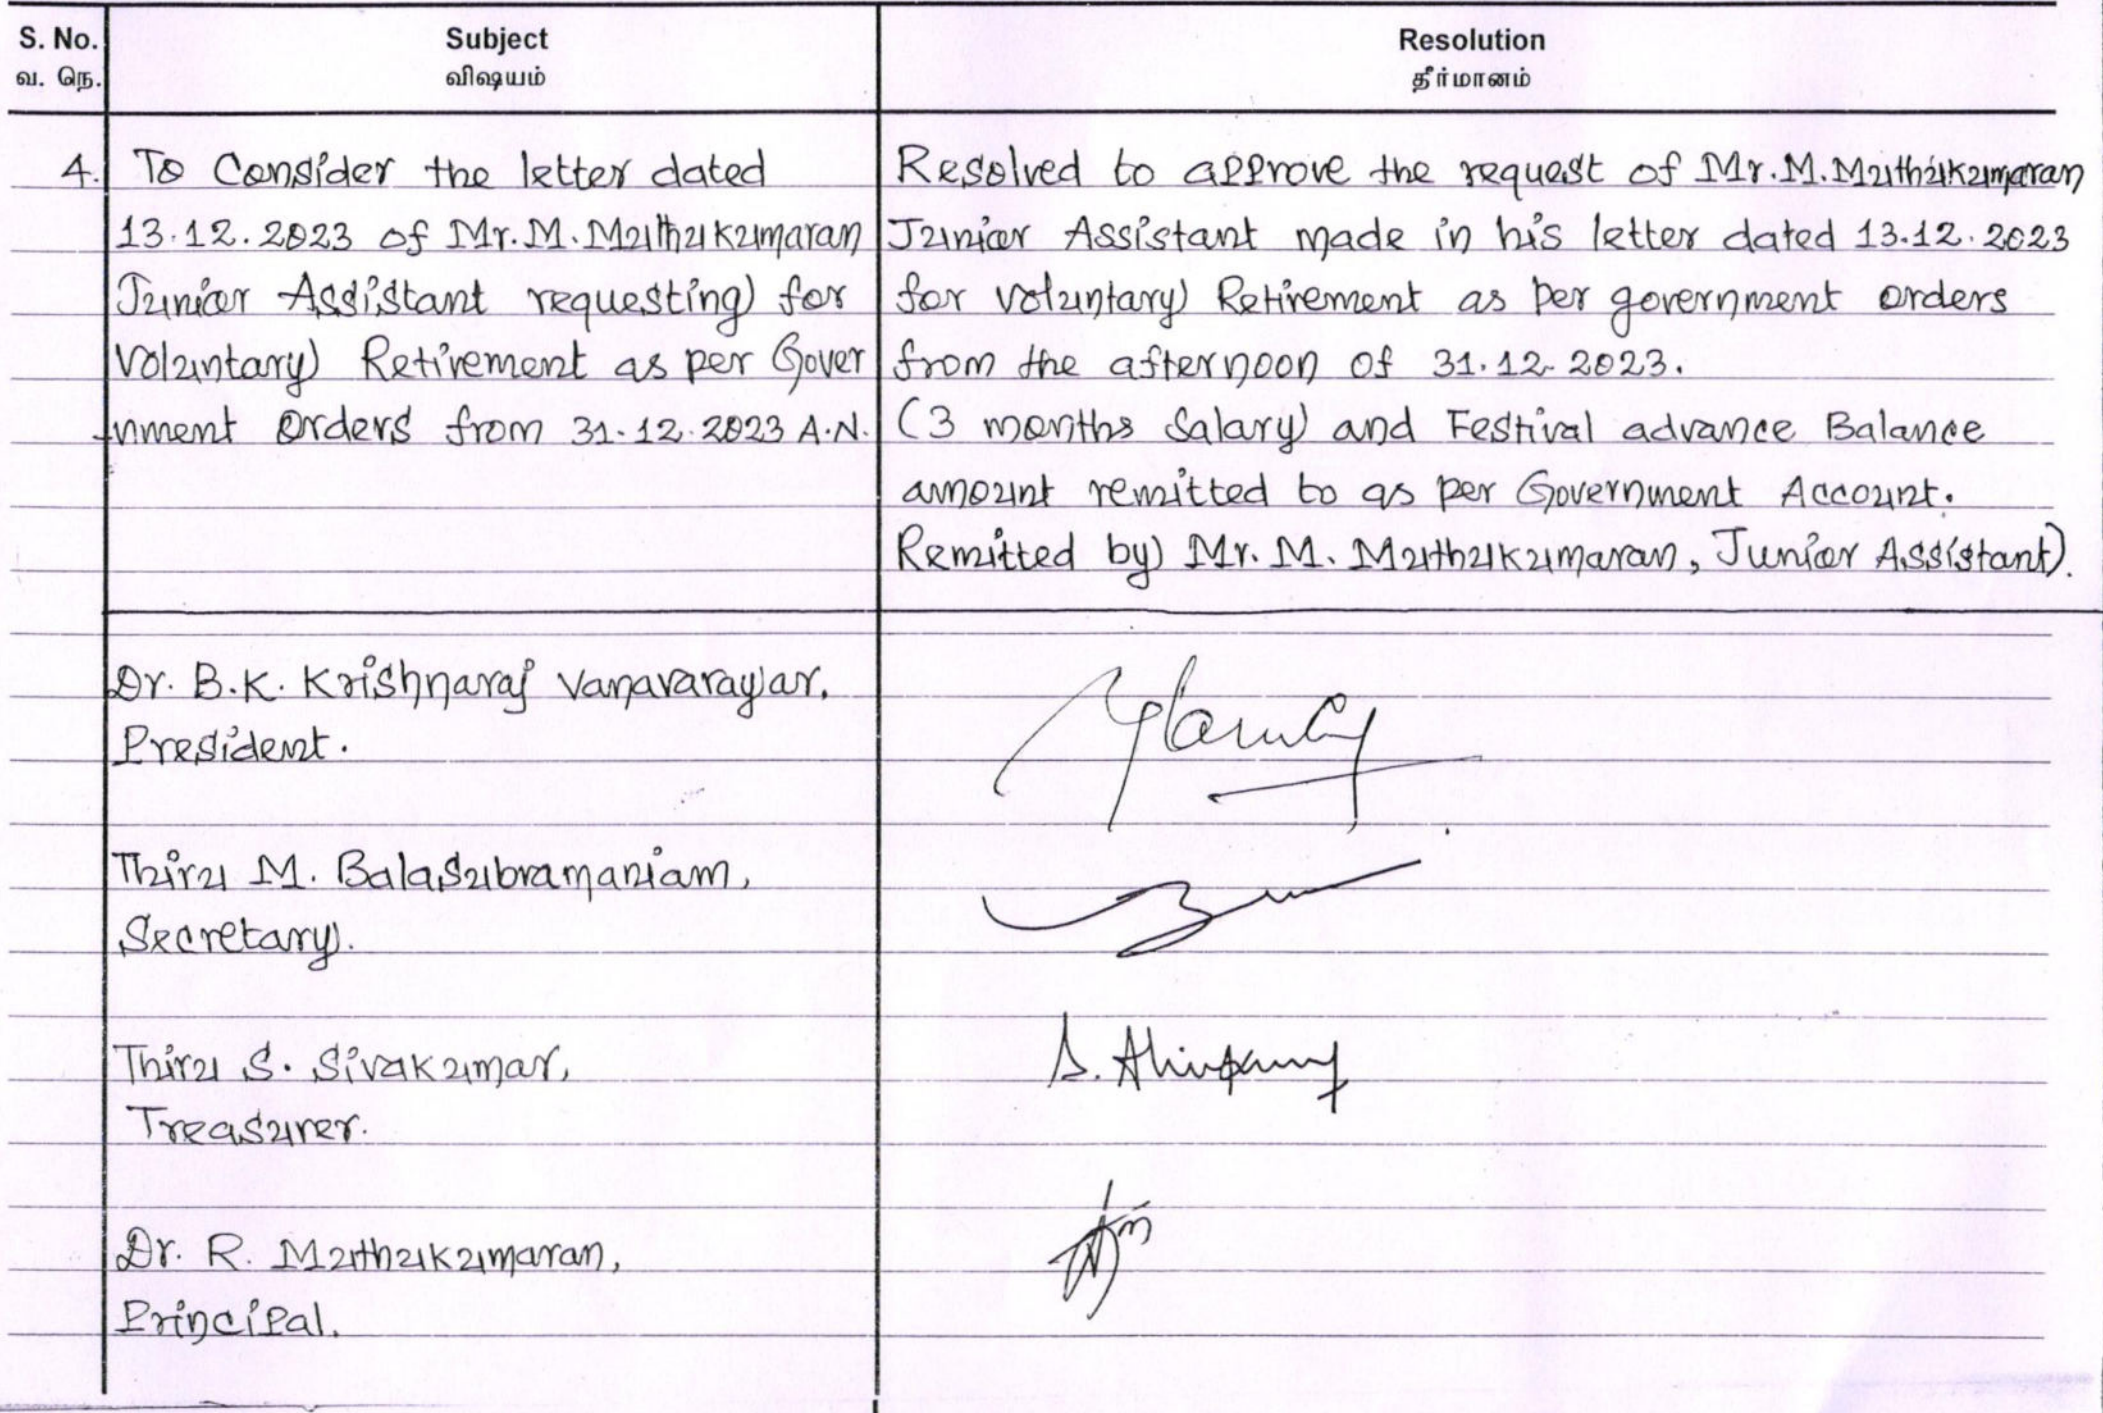 S. No. Subject Resolution
வ. நெ. விஷயம் தீர்மானம்
4. To Consider the letter dated
13.12.2023 of Mr.M.Muthukumaran
Junior Assistant requesting for
Voluntary Retirement as per Gover
nment Orders from 31.12.2023 A.N.
Resolved to approve the request of Mr.M.Muthukumaran
Junior Assistant made in his letter dated 13.12.2023
for Voluntary Retirement as per government orders
from the afternoon of 31.12.2023.
(3 months Salary and Festival advance Balance
amount remitted to as per Government Account.
Remitted by Mr. M. Muthukumaran, Junior Assistant).
Dr. B.K. Krishnaraj Vanavarayar,
President.
Thiru M. Balasubramaniam,
Secretary.
Thiru S. Sivakumar,
Treasurer.
Dr. R. Muthukumaran,
Principal.